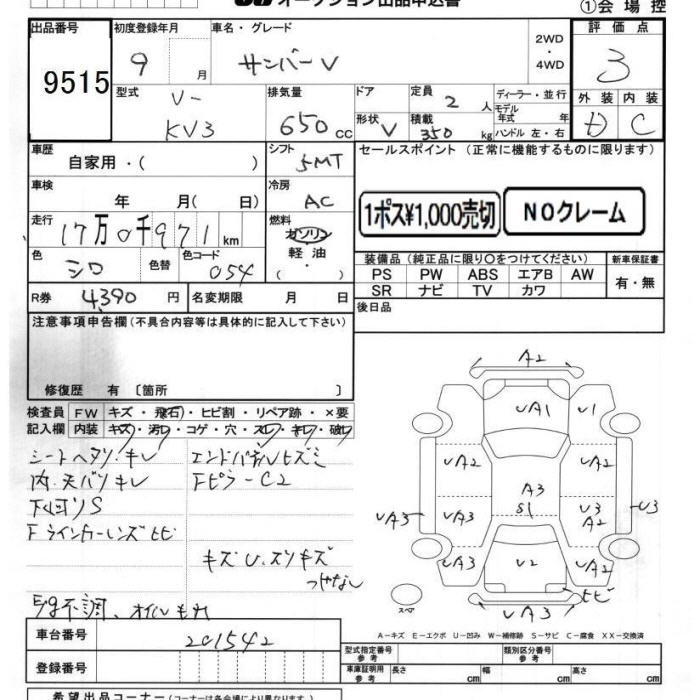 オークション出品申込書
①会 場 控
出品番号
9515
初度登録年月
9 月
車名・グレード
サンバーV
2WD
・
4WD
評 価 点
3
外 装
内 装
D
C
型式
V-
KV3
排気量
650 cc
ドア
形状 V
定員
2 人
積載
350 kg
ディーラー・並行
モデル
年式 年
ハンドル 左・右
車歴
自家用・( )
シフト
5MT
セールスポイント (正常に機能するものに限ります)
1ポス¥1,000売切
NOクレーム
車検
年 月( 日)
冷房
AC
走行
17万0千971 km
燃料
ガソリン
軽 油
( ・ )
色
シロ
色替
色コード
054
装備品(純正品に限り〇をつけてください)
新車保証書
PS PW ABS エアB AW
SR ナビ TV カワ
有・無
R券 4,390 円
名変期限 月 日
後日品
注意事項申告欄(不具合内容等は具体的に記入して下さい)
修復歴 有 〔箇所 〕
検査員
記入欄
FW キズ・飛石・ヒビ割・リペア跡・×要
内装 キズ・汚レ・コゲ・穴・スレ・キレ・破レ
シートヘタリ・キレ
内、天バリキレ
下回リS
Fラインカーレンズヒビ
エンドパネルヒズミ
FピラーC2
キズU、スリキズ
つやなし
E/g不調、オイルもれ
A2
UA1
U1
UA2
UA2
A3
S1
UA3
UA3
U3
A2
U3
UA3
U2
UA2
ヒビ
UA3
スペア
A-キズ E-エクボ U-凹み W-補修跡 S-サビ C-腐食 XX-交換済
車台番号
201542
登録番号
型式指定番号
参 考
類別区分番号
参 考
車庫証明用
参 考
長さ cm
幅 cm
高さ cm
希望出品コーナー